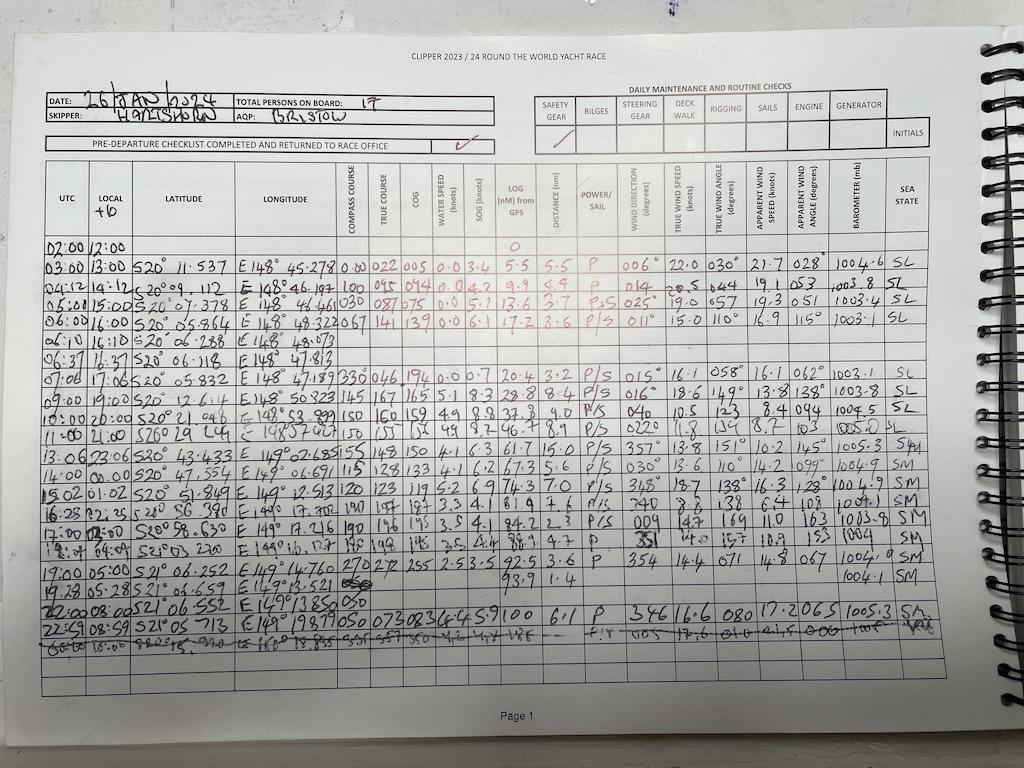 CLIPPER 2023 / 24 ROUND THE WORLD YACHT RACE
DATE: 26/JAN/2024 TOTAL PERSONS ON BOARD: 17
SKIPPER: HARTSHORN AQP: BRISTOW
PRE-DEPARTURE CHECKLIST COMPLETED AND RETURNED TO RACE OFFICE ✓
DAILY MAINTENANCE AND ROUTINE CHECKS
SAFETY GEAR BILGES STEERING GEAR DECK WALK RIGGING SAILS ENGINE GENERATOR
✓ INITIALS
UTC LOCAL +10 LATITUDE LONGITUDE COMPASS COURSE TRUE COURSE COG WATER SPEED (knots) SOG (knots) LOG (nM) from GPS DISTANCE (nm) POWER/ SAIL WIND DIRECTION (degrees) TRUE WIND SPEED (knots) TRUE WIND ANGLE (degrees) APPARENT WIND SPEED (knots) APPARENT WIND ANGLE (degrees) BAROMETER (mb) SEA STATE
02:00 12:00 0
03:00 13:00 S20° 11.537 E 148° 45.278 0.00 022 005 0.0 3.4 5.5 5.5 P 006° 22.0 030° 21.7 028° 1004.6 SL
04:12 14:12 S20° 09.112 E 148° 46.197 100 095 094 0.0 4.2 9.9 4.4 P 014 20.5 044 19.1 053 1003.8 SL
05:01 15:00 S20° 07.378 E 148° 46.461 030 087 075 0.0 5.1 13.6 3.7 P/S 025° 19.0 057 19.3 051 1003.4 SL
06:00 16:00 S20° 05.864 E 148° 48.322 067 141 139 0.0 6.1 17.2 3.6 P/S 011° 15.0 110° 16.9 115° 1003.1 SL
06:10 16:10 S20° 06.288 E 148° 48.073
06:37 16:37 S20° 06.118 E 148° 47.813
07:06 17:06 S20° 05.832 E 148° 47.189 330° 046 194 0.0 0.7 20.4 3.2 P/S 015° 16.1 058° 16.1 062° 1003.1 SL
09:00 19:00 S20° 12.614 E 148° 50.323 145 167 165 5.1 8.3 28.8 8.4 P/S 016° 18.6 149° 13.8 138° 1003.8 SL
10:00 20:00 S20° 21.048 E 148° 53.899 150 160 159 4.9 8.8 37.8 9.0 P/S 040 10.5 123 8.4 094 1004.5 SL
11:00 21:00 150 8.2 46.7 8.9 P/S 022° 8.2 103 1005.0 SL
13:06 23:06 S20° 43.433 E 149° 02.685 155 148 150 4.1 6.3 61.7 15.0 P/S 357° 13.8 151° 10.2 145° 1005.3 SM
14:00 00:00 S20° 47.554 E 149° 06.671 115 128 133 4.1 6.2 67.3 5.6 P/S 030° 13.6 110° 14.2 099° 1004.9 SM
15:02 01:02 S20° 51.849 E 149° 12.513 120 123 119 5.2 6.9 74.3 7.0 P/S 348° 18.7 138° 16.3 128° 1004.9 SM
16:25 S20° 56.390 E 149° 17.702 190 197 187 3.3 4.1 81.9 7.6 P/S 340 8.8 138 6.4 108 1004.1 SM
17:00 03:00 S20° 58.630 E 149° 17.216 190 196 195 3.5 4.1 84.2 2.3 P/S 009 14.7 169 11.0 163 1003.8 SM
04:09 S21° 03 E 149° 4.7 P 351 14.0 157 10.9 153 1004 SM
19:00 05:00 S21° 06.252 E 149° 14.760 270 272 255 2.5 3.5 92.5 3.6 P 354 14.4 071 14.8 067 1004.9 SM
19:28 05:28 S21° 06.659 E 149° 13.521 93.9 1.4 1004.1 SM
22:00 08:00 S21° 06.552 E 149° 13850 050
22:59 08:59 S21° 05 713 E 149° 19877 050 073 083 4.4 5.9 100 6.1 P 346 16.6 080 17.2 065 1005.3 SM
Page 1